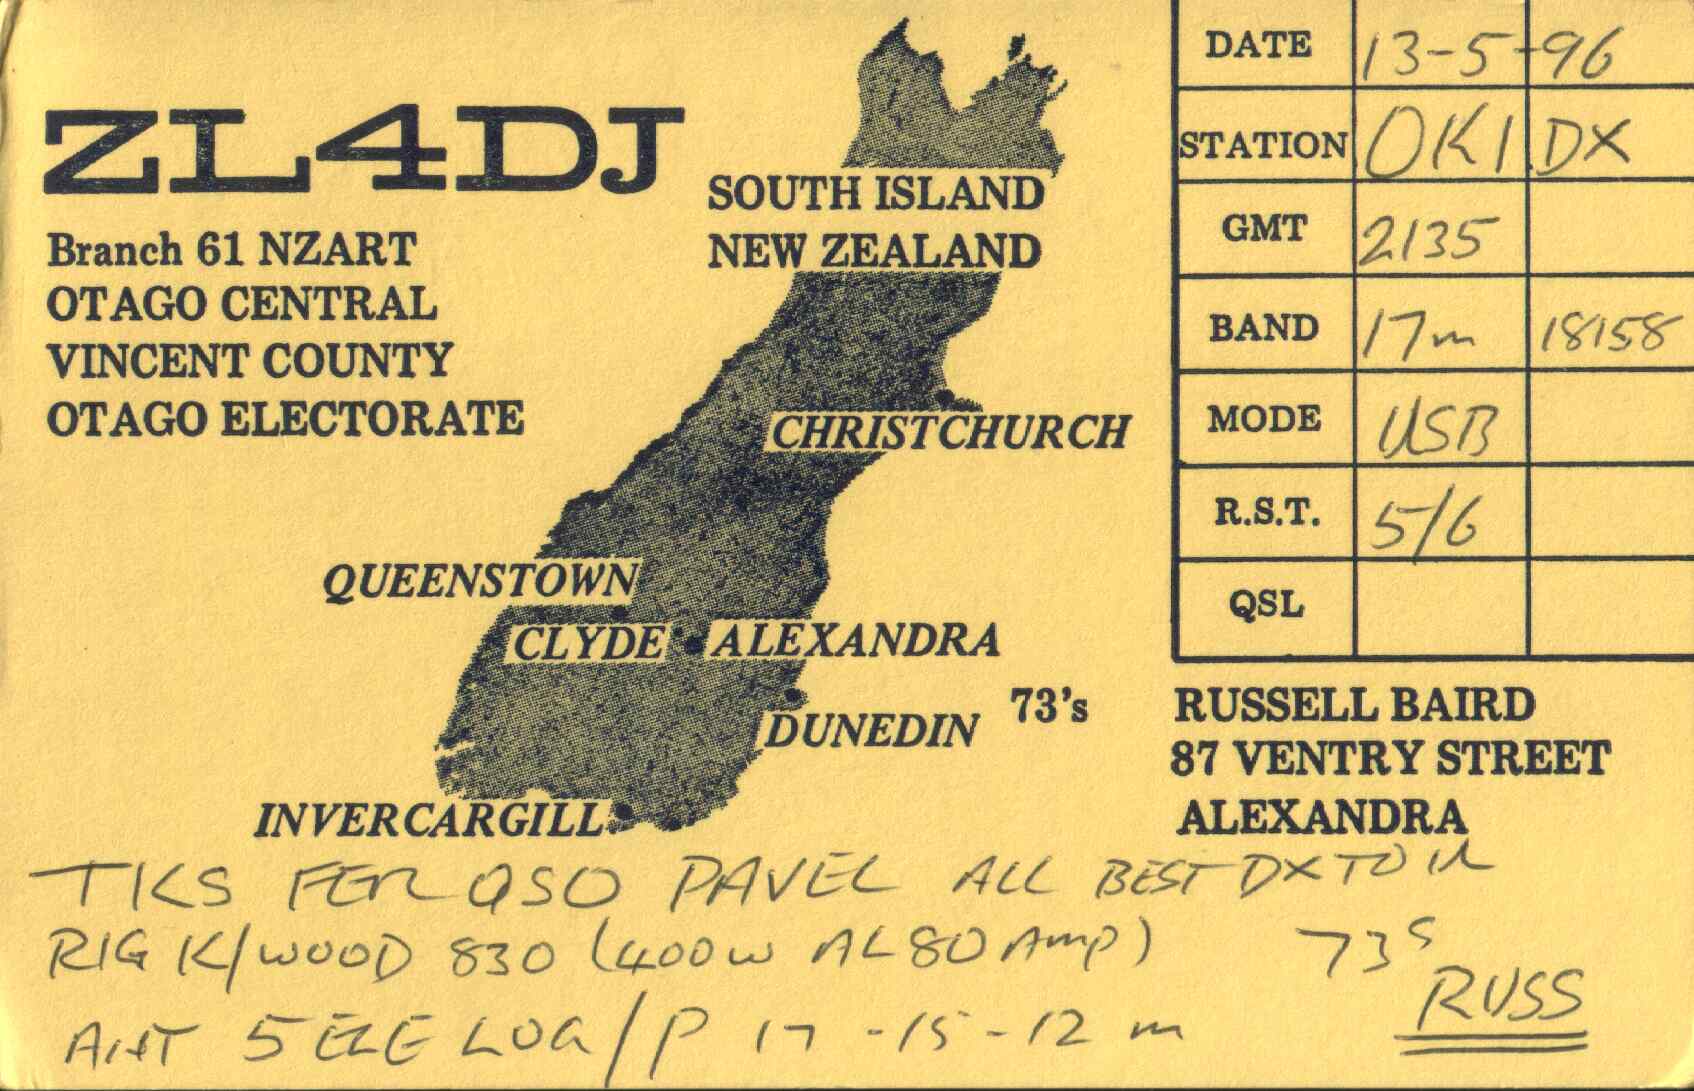 ZL4DJ
Branch 61 NZART
OTAGO CENTRAL
VINCENT COUNTY
OTAGO ELECTORATE
SOUTH ISLAND
NEW ZEALAND
CHRISTCHURCH
QUEENSTOWN
CLYDE ALEXANDRA
DUNEDIN
INVERCARGILL
DATE 13-5-96
STATION OK1DX
GMT 2135
BAND 17m 18158
MODE USB
R.S.T. 5/6
QSL
73's RUSSELL BAIRD
87 VENTRY STREET
ALEXANDRA
TKS FER QSO PAVEL ALL BEST DX TO U
RIG K/WOOD 830 (400W AL80 Amp) 73s
ANT 5 ELE LOG/P 17-15-12 m RUSS